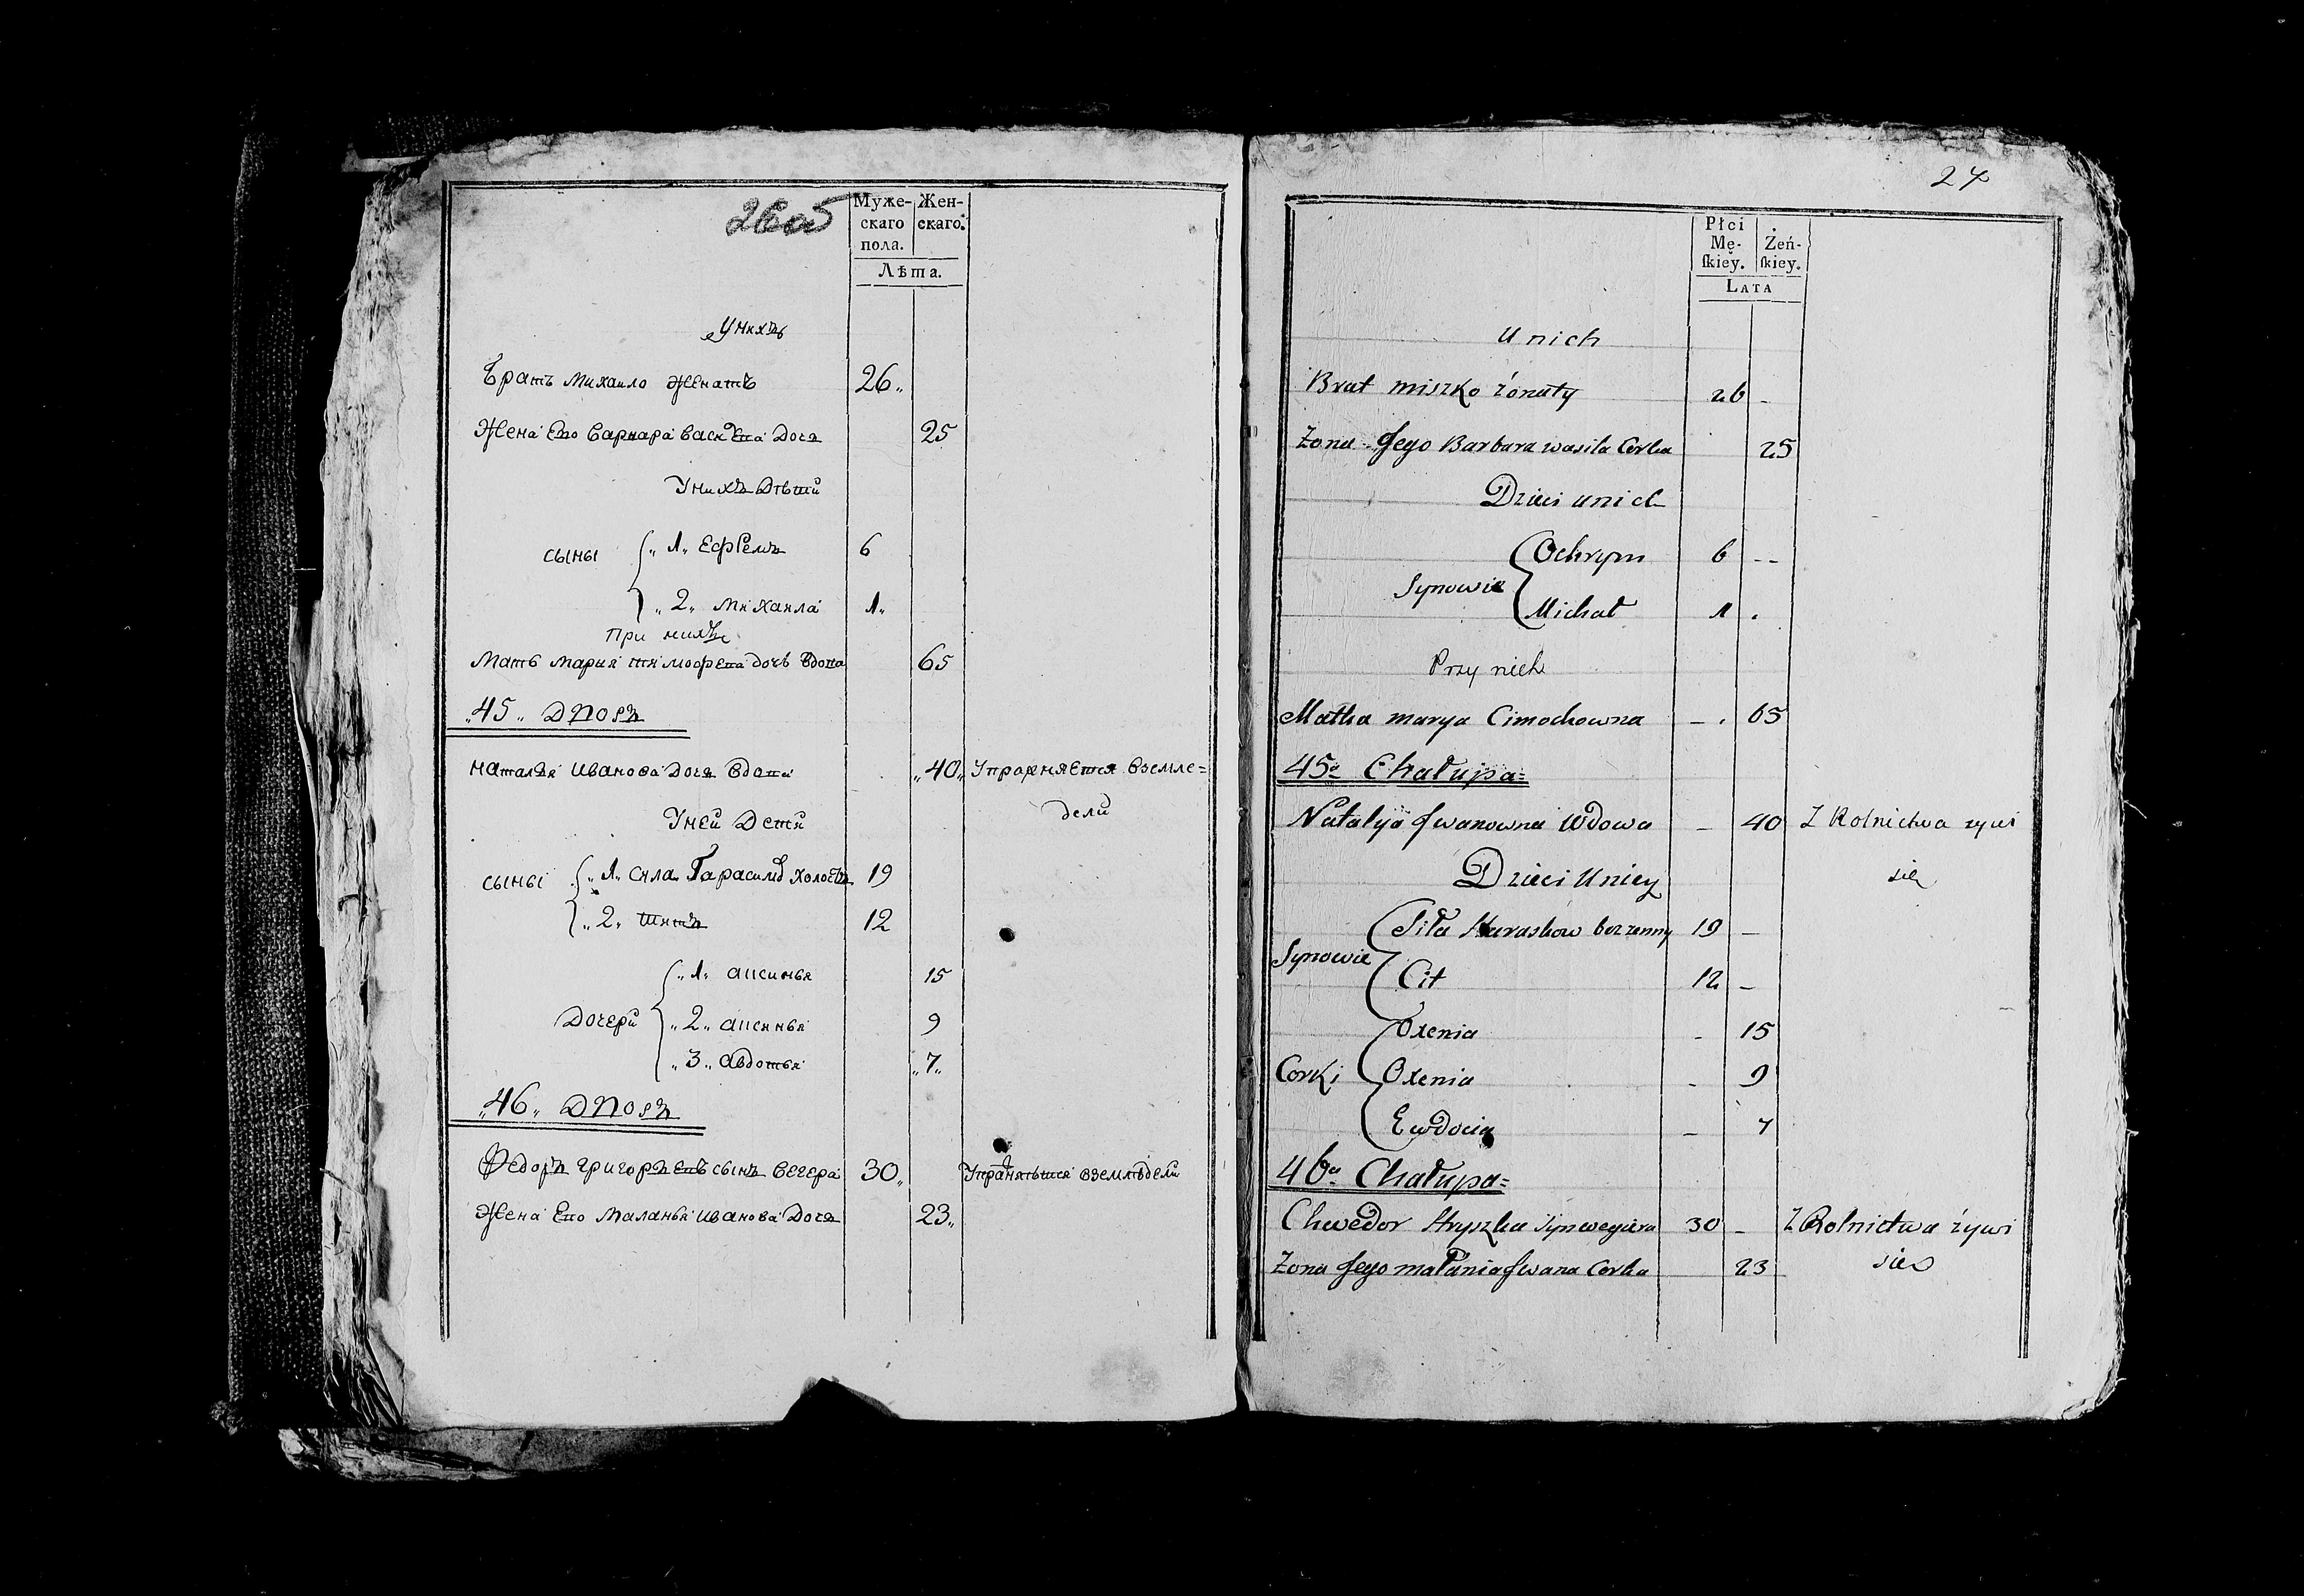 26об
Муже- Жен-
скаго скаго.
пола.
Лѣта.
Унихъ
Братъ Михаило женатъ 26
Жена Его Варвара Васильева Дочь 25
Унихъ Дѣти
сыны 1 Ефремъ 6
2 Михаила 1
При нихъ
Мать Мария тимофеева дочь вдова 65
45 Дворъ
наталья Иванова Дочь вдова 40 Упражняется вземле=
дели
Уней Дети
сыны 1 сила Гарасимов холостъ 19
2 титъ 12
1 аксинья 15
Дочери 2 аксинья 9
3 авдотья 7
46 Дворъ
Федоръ григорьевъ сынъ вечера 30
Жена Его Маланья иванова Дочь 23
27
Płci
Mę- Żeń-
ſkiey. ſkiey.
LATA
U nich
Brat miszko żonaty 26 -
Żona Jego Barbara wasila Corka 25
Dzieci unich
Synowie Ochrym 6 --
Michał 1 .
Przy nich
Matka marya Cimochowna - . 65
45a Chałupa=
Natalya Jwanowna Wdowa - 40 Z Rolnictwa zywi
się
Dzieci Uniey
Synowie Siła Haraskow bezzenny 19 -
Cit 12 -
Oxenia - 15
Corki Oxenia - 9
Ewdocia - 7
46a Chałupa=
Chwedor Hryszka Syn weczera 30 - Z Rolnictwa żywi
sie
Zona Jego małania Jwana Corka 23